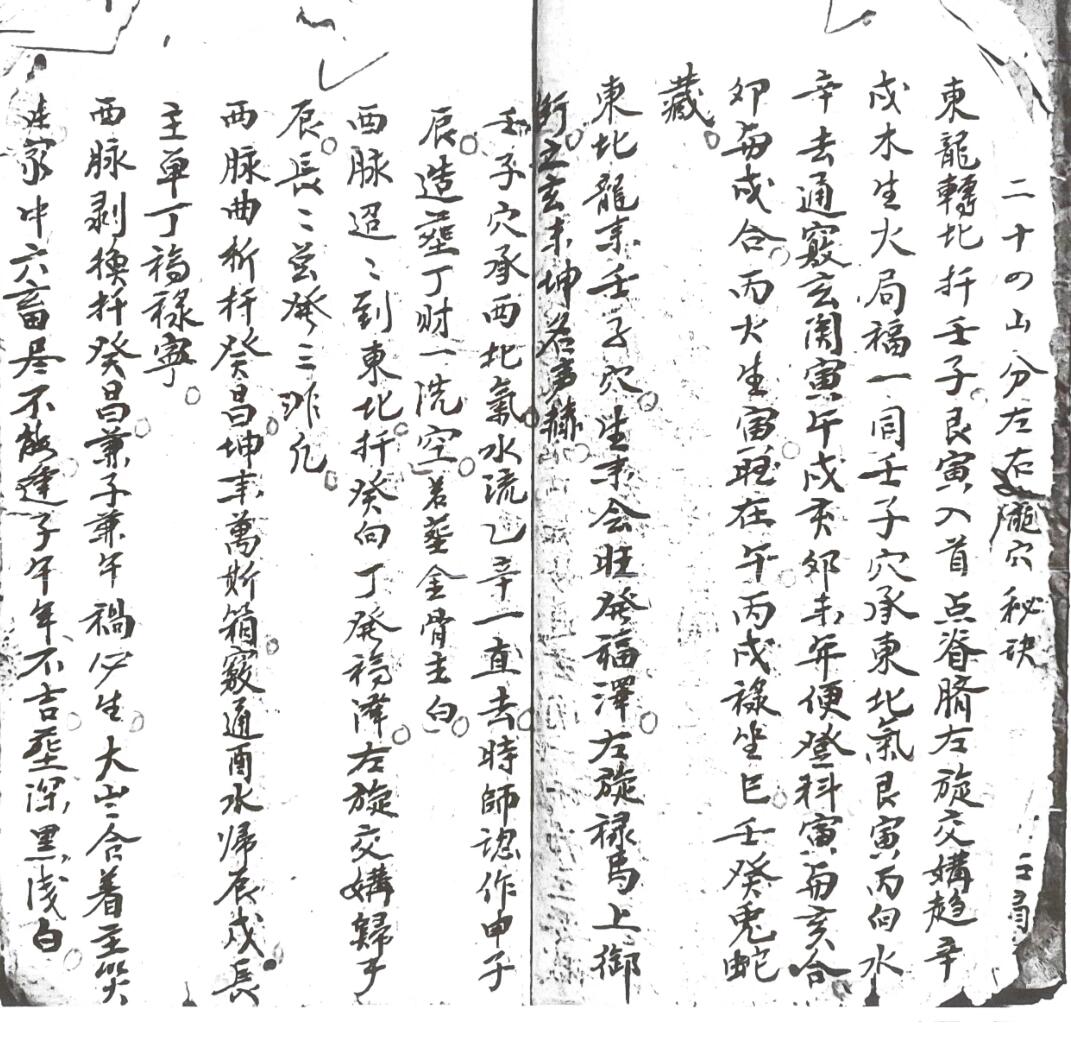 二十四山分左右龍穴秘訣
東龍轉北扦壬子艮寅入首点脊臍左旋交媾趋辛
戍木生火局福一同壬子穴承東北氣艮寅丙向水
辛去通竅玄関寅午戍亥卯未年便登科寅與亥合
卯與戍合丙火生寅旺在午丙戍祿坐巳壬癸兎蛇
藏
東北龍来壬子穴生来会旺発福澤左旋禄馬上御
街立玄未坤名声赫
壬子穴承西北氣水流乙辛一直去時師認作申子
辰造塟丁财一洗空若塟金骨主白
西脉迢〻到東北扦癸向丁発福澤左旋交媾歸于
辰長〻並発三
西脉曲折扦癸昌坤来萬斯箱竅通酉水帰辰戍長
主单丁福禄寧
西脉剥换扦癸昌兼子兼午禍必生大 合着主
家中六畜 不 逢子午年年不吉塟深黑浅白